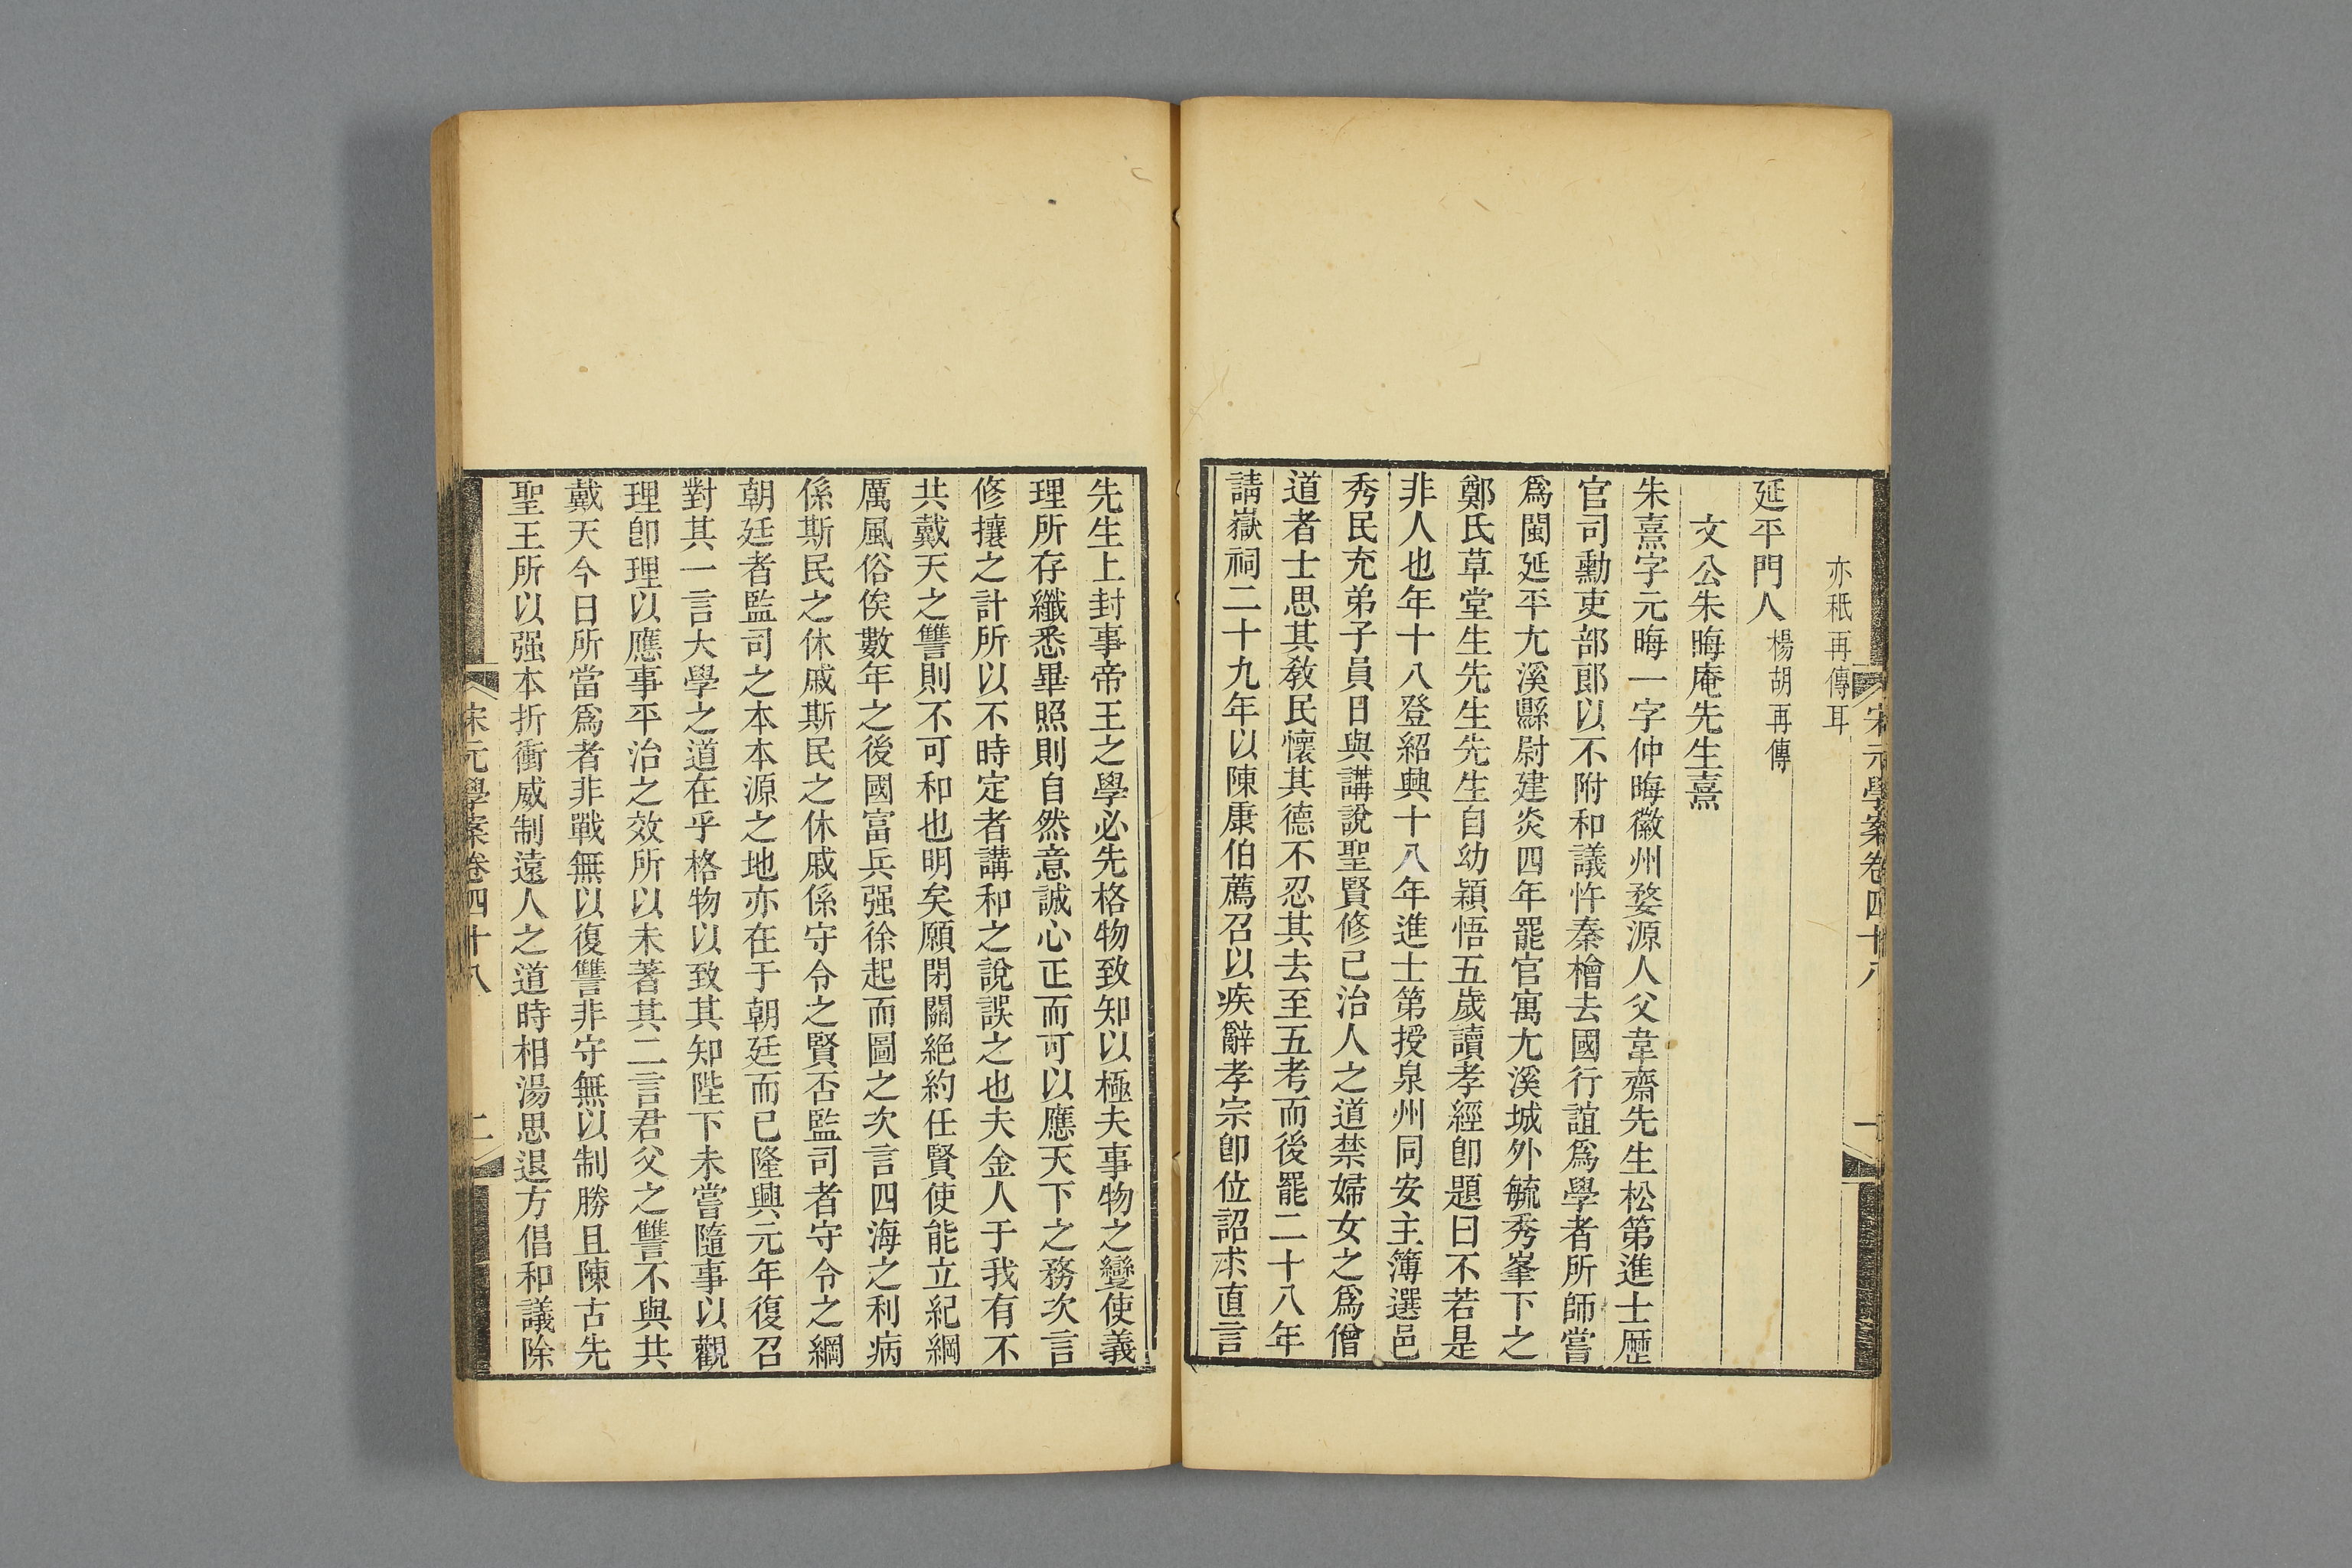 亦秖再傳耳
延平門人楊胡再傳
文公朱晦庵先生熹
朱熹字元晦一字仲晦徽州婺源人父韋齋先生松第進士歷
官司勳吏部郎以不附和議忤秦檜去國行誼爲學者所師嘗
爲閩延平尤溪縣尉建炎四年罷官寓尤溪城外毓秀峯下之
鄭氏草堂生先生先生自幼穎悟五歲讀孝經卽題曰不若是
非人也年十八登紹興十八年進士第授泉州同安主簿選邑
秀民充弟子員日與講說聖賢修已治人之道禁婦女之爲僧
道者士思其敎民懷其德不忍其去至五考而後罷二十八年
請嶽祠二十九年以陳康伯薦召以疾辭孝宗卽位詔求直言
宋元學案卷四十八
先生上封事帝王之學必先格物致知以極夫事物之變使義
理所存纖悉畢照則自然意誠心正而可以應天下之務次言
修攘之計所以不時定者講和之說誤之也夫金人于我有不
共戴天之讐則不可和也明矣願閉關絕約任賢使能立紀綱
厲風俗俟數年之後國富兵强徐起而圖之次言四海之利病
係斯民之休戚斯民之休戚係守令之賢否監司者守令之綱
朝廷者監司之本本源之地亦在于朝廷而已隆興元年復召
對其一言大學之道在乎格物以致其知陛下未嘗隨事以觀
理卽理以應事平治之效所以未著其二言君父之讐不與共
戴天今日所當爲者非戰無以復讐非守無以制勝且陳古先
聖王所以强本折衝威制遠人之道時相湯思退方倡和議除
宋元學案卷四十八 二